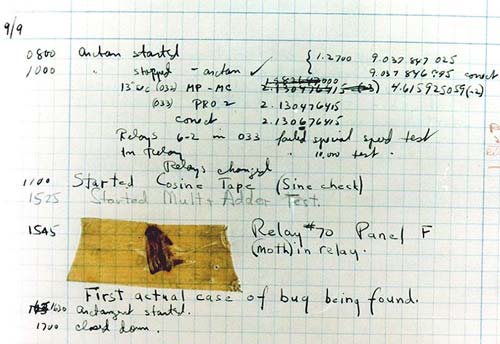 9/9
0800 arctan started { 1.2700 9.037 847 025
1000 " stopped - arctan ✓ 9.037 846 995 correct
13"uc (032) MP-MC 2.130476415 (-3) 4.615925059(-2)
(033) PRO 2 2.130476415
correct 2.130676415
Relays 6-2 in 033 failed special speed test
In Relay " 10,000 test.
Relays changed
1100 Started Cosine Tape (Sine check)
1525 Started Mult+Adder Test.
1545 Relay #70 Panel F
(moth) in relay.
First actual case of bug being found.
1630 arctangent started.
1700 closed down.